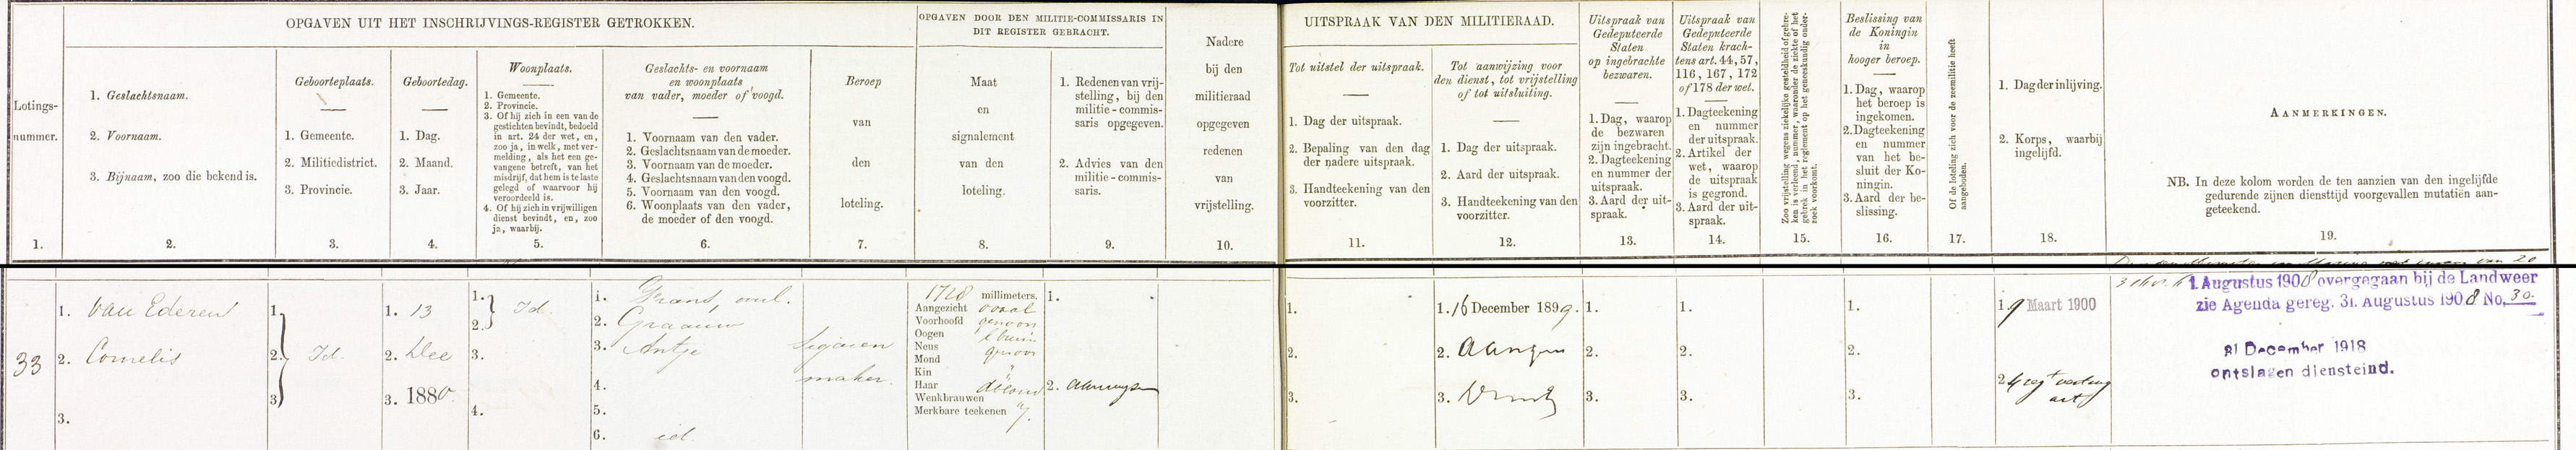 OPGAVEN UIT HET INSCHRIJVINGS-REGISTER GETROKKEN.
OPGAVEN DOOR DEN MILITIE-COMMISSARIS IN
DIT REGISTER GEBRACHT.
Lotings-
nummer.
1.
1. Geslachtsnaam.
2. Voornaam.
3. Bijnaam, zoo die bekend is.
2.
Geboorteplaats.
1. Gemeente.
2. Militiedistrict.
3. Provincie.
3.
Geboortedag.
1. Dag.
2. Maand.
3. Jaar.
4.
Woonplaats.
1. Gemeente.
2. Provincie.
3. Of hij zich in een van de
gestichten bevindt, bedoeld
in art. 24 der wet, en,
zoo ja, in welk, met ver-
melding, als het een ge-
vangene betreft, van het
misdrijf, dat hem is te laste
gelegd of waarvoor hij
veroordeeld is.
4. Of hij zich in vrijwilligen
dienst bevindt, en, zoo
ja, waarbij.
5.
Geslachts- en voornaam
en woonplaats
van vader, moeder of voogd.
1. Voornaam van den vader.
2. Geslachtsnaam van de moeder.
3. Voornaam van de moeder.
4. Geslachtsnaam van den voogd.
5. Voornaam van den voogd.
6. Woonplaats van den vader,
de moeder of den voogd.
6.
Beroep
van
den
loteling.
7.
Maat
en
signalement
van den
loteling.
8.
1. Redenen van vrij-
stelling, bij den
militie-commis-
saris opgegeven.
2. Advies van den
militie-commis-
saris.
9.
Nadere
bij den
militieraad
opgegeven
redenen
van
vrijstelling.
10.
UITSPRAAK VAN DEN MILITIERAAD.
Tot uitstel der uitspraak.
1. Dag der uitspraak.
2. Bepaling van den dag
der nadere uitspraak.
3. Handteekening van den
voorzitter.
11.
Tot aanwijzing voor
den dienst, tot vrijstelling
of tot uitsluiting.
1. Dag der uitspraak.
2. Aard der uitspraak.
3. Handteekening van den
voorzitter.
12.
Uitspraak van
Gedeputeerde
Staten
op ingebrachte
bezwaren.
1. Dag, waarop
de bezwaren
zijn ingebracht.
2. Dagteekening
en nummer der
uitspraak.
3. Aard der uit-
spraak.
13.
Uitspraak van
Gedeputeerde
Staten krach-
tens art. 44, 57,
116, 167, 172
of 178 der wet.
1. Dagteekening
en nummer
der uitspraak.
2. Artikel der
wet, waarop
de uitspraak
is gegrond.
3. Aard der uit-
spraak.
14.
Zoo vrijstelling wegens ziekelijke gesteldheid of gebre-
ken is verleend, nummer, waaronder de ziekte of het
gebrek in het reglement op het geneeskundig onder-
zoek voorkomt.
15.
Beslissing van
de Koningin
in
hooger beroep.
1. Dag, waarop
het beroep is
ingekomen.
2. Dagteekening
en nummer
van het be-
sluit der Ko-
ningin.
3. Aard der be-
slissing.
16.
Of de loteling zich voor de zeemilitie heeft
aangeboden.
17.
1. Dag der inlijving.
2. Korps, waarbij
ingelijfd.
18.
AANMERKINGEN.
NB. In deze kolom worden de ten aanzien van den ingelijfde
gedurende zijnen diensttijd voorgevallen mutatiën aan-
geteekend.
19.
33
1. van Ederen
2. Cornelis
3.
1.
2. Id.
3.
1. 13
2. Dec
3. 1880.
1. Id.
2.
3.
4.
1. Frans, ovl.
2. Graauw
3. Antje
4.
5.
6. id.
Sigaren
maker.
1728 millimeters.
Aangezicht ovaal
Voorhoofd gewoon
Oogen bruin
Neus gewoon
Mond
Kin "
Haar dblond
Wenkbrauwen "
Merkbare teekenen
1.
2.
1.
2.
3.
1. 16 December 1899.
2.
3.
1.
2.
3.
1.
2.
3.
1.
2.
3.
1. 9 Maart 1900
2. 4 regt vesting
art
1 Augustus 1908 overgegaan bij de Landweer
zie Agenda gereg. 31. Augustus 1908 No. 30.
31 December 1918
ontslagen diensteind.